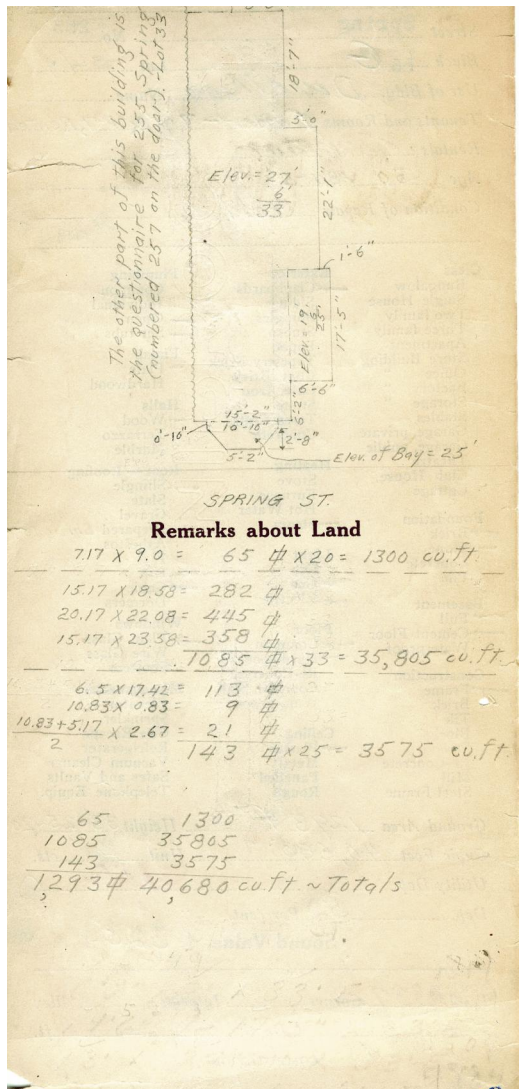 The other part of this building is
the questionnaire for 255 Spring
(numbered 257 on the door).-Lot 33
18'-7"
5'-0"
Elev.= 27'
6
33
22'-1"
1'-6"
Elev.= 19'
6
25'
17'-5"
6'-6"
6'-2"
15'-2"
10'-10"
0'-10"
2'-8"
5'-2"
Elev. of Bay = 25'
SPRING ST.
Remarks about Land
7.17 X 9.0 = 65 ⏍ X 20 = 1300 cu.ft.
15.17 X 18.58 = 282 ⏍
20.17 X 22.08 = 445 ⏍
15.17 X 23.58 = 358 ⏍
1085 ⏍ X 33 = 35,805 cu.ft.
6.5 X 17.42 = 113 ⏍
10.83 X 0.83 = 9 ⏍
10.83+5.17
2 X 2.67 = 21 ⏍
143 ⏍ X 25 = 3575 cu.ft.
65 1300
1085 35805
143 3575
1,293 ⏍ 40,680 cu.ft. ~ Totals